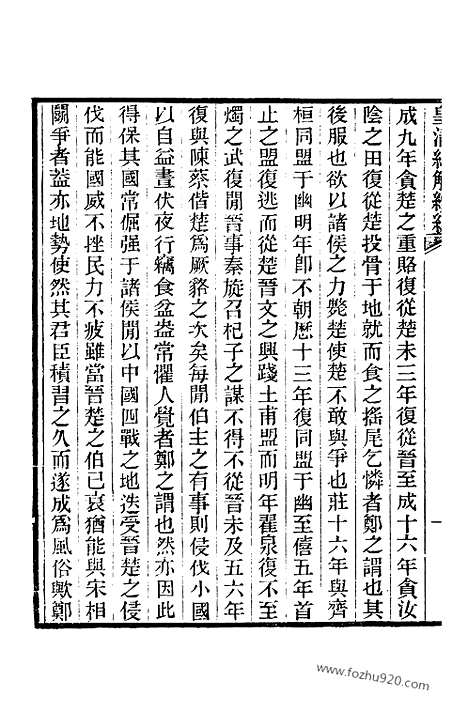 皇清經解續編
成九年貪楚之重賂復從楚未三年復從晉至成十六年貪汝
陰之田復從楚投骨于地就而食之搖尾乞憐者鄭之謂也其
後服也欲以諸侯之力斃楚使楚不敢與爭也莊十六年與齊
桓同盟于幽明年卽不朝歷十三年復同盟于幽至僖五年首
止之盟復逃而從楚晉文之興踐土甫盟而明年翟泉復不至
燭之武復閒晉事秦旋召杞子之謀不得不從晉未及五六年
復與陳蔡偕楚爲厥貉之次矣每閒伯主之有事則侵伐小國
以自益晝伏夜行竊食盆盎常懼人覺者鄭之謂也然亦因此
得保其國常倔强于諸侯閒以中國四戰之地迭受晉楚之侵
伐而能國威不挫民力不疲雖當晉楚之伯已衰猶能與宋相
鬭爭者蓋亦地勢使然其君臣積習之久而遂成爲風俗歟鄭
www.fozhu920.com